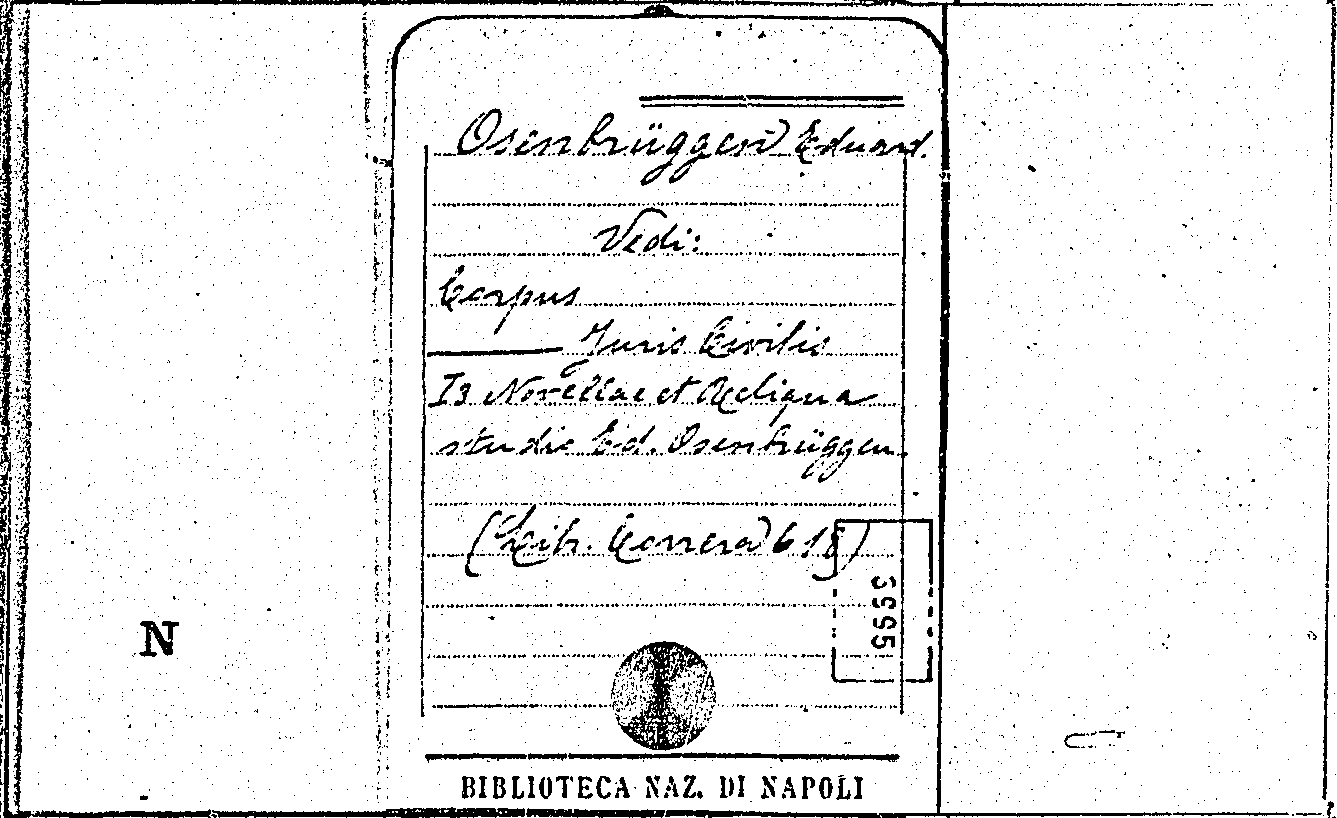 Osenbrüggen Eduard.
Vedi:
Corpus
Juris Civilis
I3 Novellae et Reliqua
studio Ed. Osenbrüggen.
Correra 618)
5995
N
BIBLIOTECA NAZ. DI NAPOLI